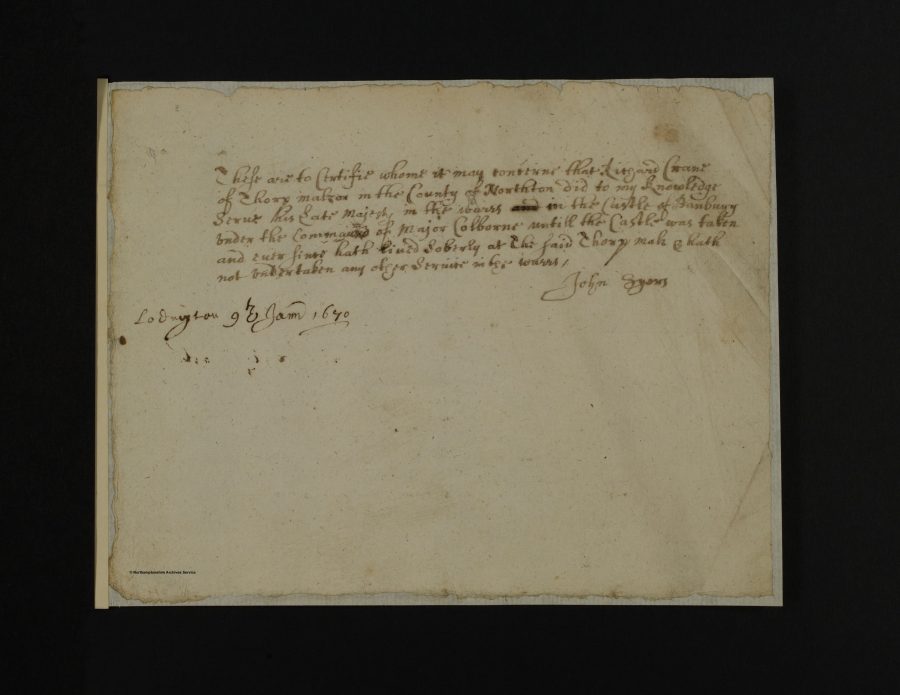 These are to Certifie whome it may concerne that Richard Crane
of Thorp malzor in the County of Northton did to my knowledge
Serve his Late Majesty in the warrs and in the Castle of Banbury
vnder the Command of Major Colborne untill the Castle was taken
and ever since hath lived soberly at The said Thorp malz & hath
not vndertaken any other Service in the warrs,
John
Lodington 9 1670
© Northamptonshire Archives Service